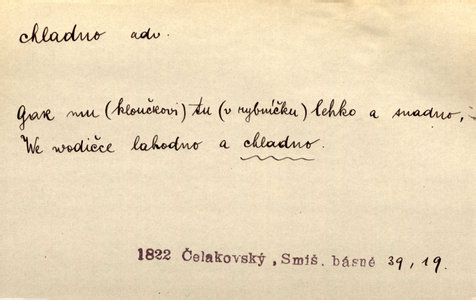 chladno adv.
Gak mu (kloučkovi) tu (v rybníčku) lehko a snadno,
We wodičce lahodno a chladno.
1822 Čelakovský, Smíš. básně 39, 19.